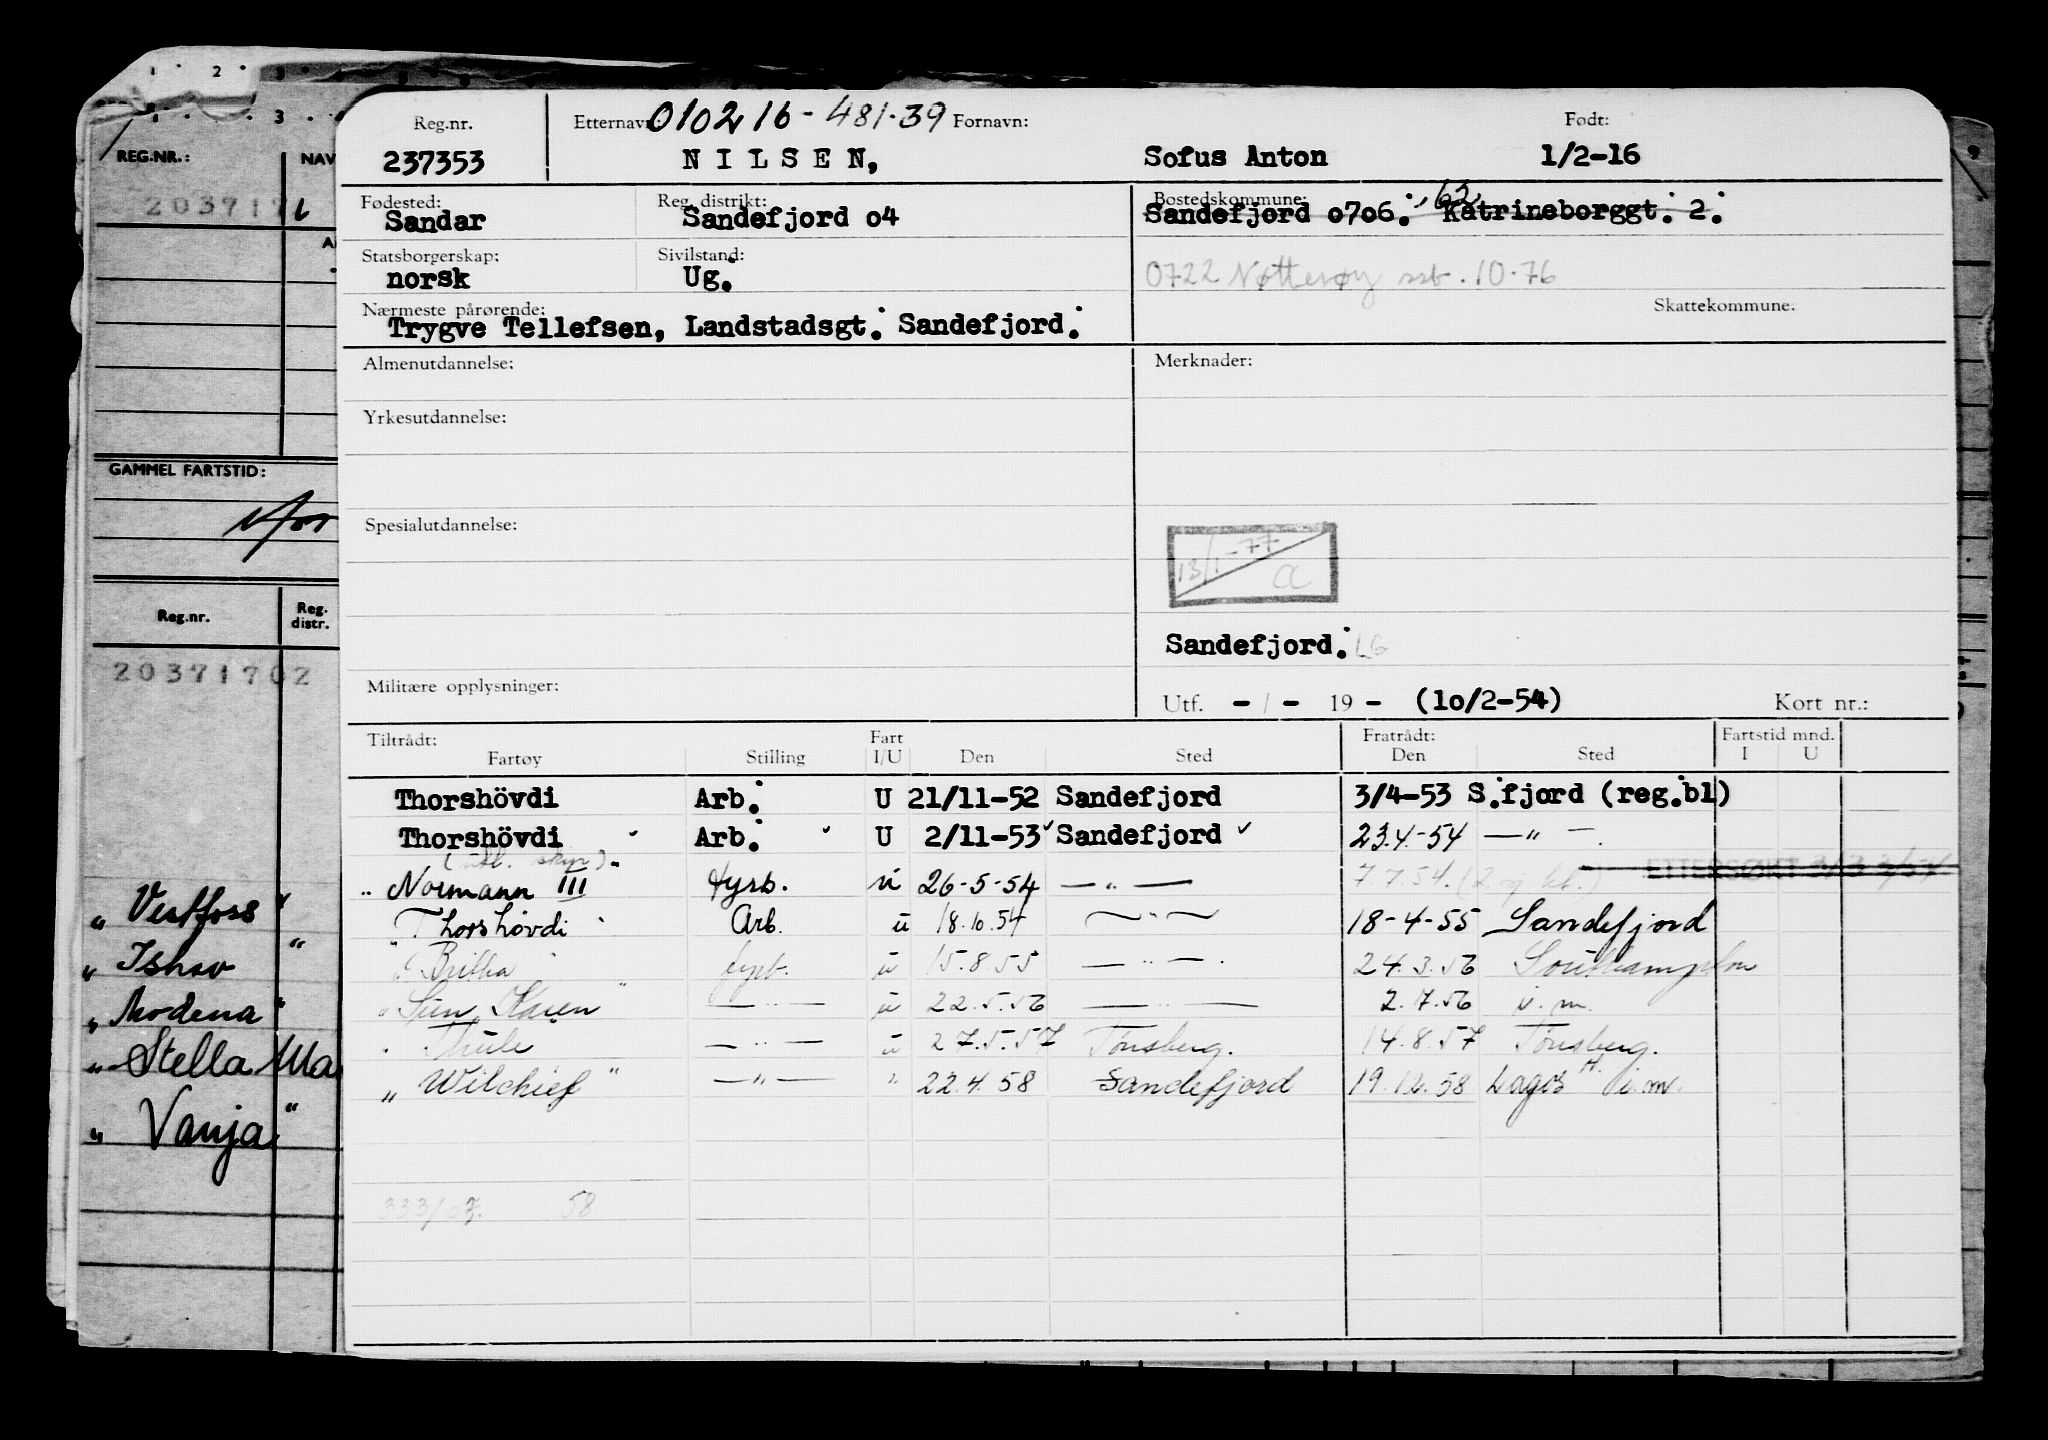 1 2 3
3
REG.NR.: NAV
2037171
GAMMEL FARTSTID:
Reg.nr. Reg. distr.
20371702
„ Vestfoss "
„ Ishav "
„ Modena "
" Stella Ma
„ Vanja "
Reg.nr. Etternavn: 010216-481.39 Fornavn: Født:
237353 NILSEN, Sofus Anton 1/2-16
Fødested: Reg. distrikt: Bostedskommune: 62
Sandar Sandefjord o4 Sandefjord o7o6. Katrineborggt. 2.
Statsborgerskap: Sivilstand:
norsk Ug. 0722 Nøtterøy ssb. 10-76
Nærmeste pårørende: Skattekommune.
Trygve Tellefsen, Landstadsgt. Sandefjord.
Almenutdannelse: Merknader:
Yrkesutdannelse:
Spesialutdannelse:
13/1-77 a
Sandefjord. LG
Militære opplysninger:
Utf. - / - 19 - (1o/2-54) Kort nr.:
Tiltrådt: Fart Fratrådt: Fartstid mnd.
Fartøy Stilling I/U Den Sted Den Sted I U
Thorshövdi Arb. U 21/11-52 Sandefjord 3/4-53 S.fjord (reg.bl)
Thorshövdi Arb. U 2/11-53 Sandefjord 23.4-54 — " —
" Normann III fyrb. u 26-5-54 — " — 7.7.54. ETTERSØKT
" Thorshövdi Arb. u 18.10.54 — " — 18-4-55 Sandefjord
" Britta " fyrb. u 15.8.55 — " — 24.3.56 Southampton
" Sun Karen " — " — u 22.5.56 — " — 2.7.56 i.m.
Thule — " — u 27.5.57 Tönsberg. 14.8.57 Tönsberg.
„ Wilchief " — " — " 22.4.58 Sandefjord 19.12.58 Lagos i.m.
58